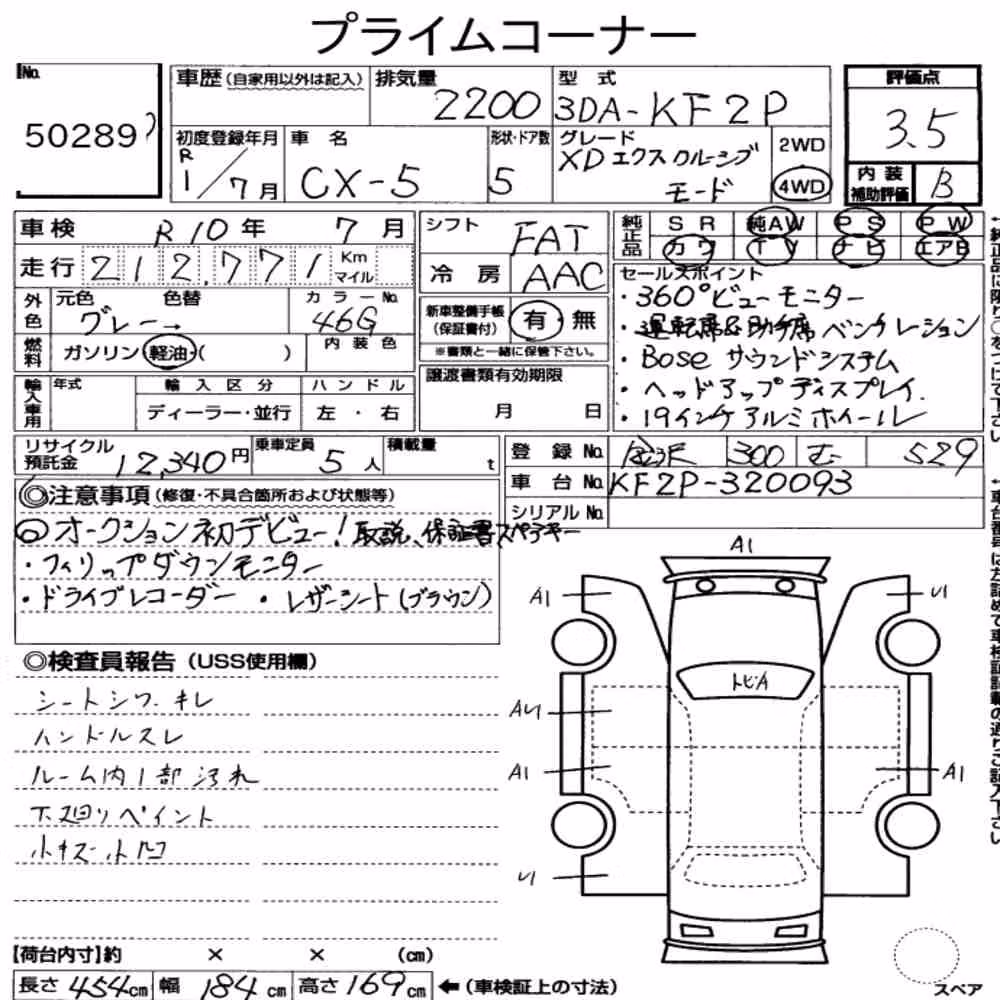 プライムコーナー
No. 50289
車歴(自家用以外は記入) 排気量 2200 型式 3DA-KF2P
評価点 3.5
初度登録年月 R1/7月 車名 CX-5 形状・ドア数 5 グレード XDエクスクルーシブモード 2WD 4WD
内装補助評価 B
車検 R10年 7月
走行 212,771 Km マイル
外色 元色 グレー→ 色替 カラーNo. 46G
燃料 ガソリン・軽油・( ) 内装色
輸入車用 年式 輸入区分 ハンドル
ディーラー・並行 左・右
シフト FAT
冷房 AAC
新車整備手帳(保証書付) 有・無
※書類と一緒に保管下さい。
譲渡書類有効期限
月 日
純正品 SR 純AW PS PW
カワ TV ナビ エアB
セールスポイント
・360°ビューモニター
・運転席&助手席ベンチレーション
・Bose サウンドシステム
・ヘッドアップディスプレイ.
・19インチアルミホイール
リサイクル預託金 12,340円 乗車定員 5人 積載量 t
登録No. 300 む 529
車台No. KF2P-320093
シリアルNo.
◎注意事項(修復・不具合箇所および状態等)
◎オークション初デビュー!取説、保証書スペアキー
・フィリップダウンモニター
・ドライブレコーダー ・レザーシート(ブラウン)
◎検査員報告(USS使用欄)
シートシワ.キレ
ハンドルスレ
ルーム内1部汚れ
下廻りペイント
小キズ小凹
A1
A1
U1
トビA
AU1
A1
A1
U1
【荷台内寸】約 × × (cm)
長さ 454cm 幅 184cm 高さ 169cm ←(車検証上の寸法)
スペア
←純正品に限り○をつけて下さい
←車台番号は左詰めで車検証記載の通りご記入下さい